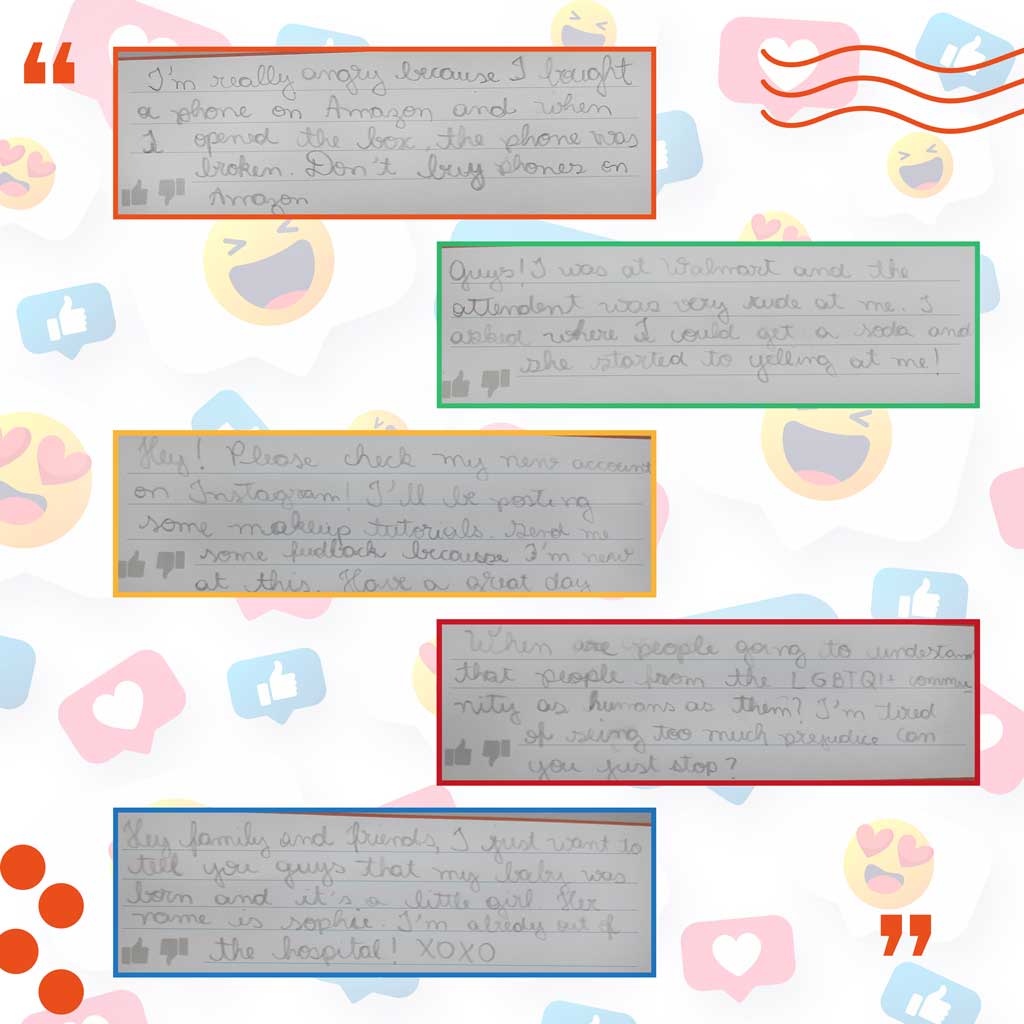 “
I'm really angry because I bought
a phone on Amazon and when
I opened the box, the phone was
broken. Don't buy phones on
Amazon
Guys! I was at Walmart and the
attendent was very rude at me. I
asked where I could get a soda and
she started to yelling at me!
Hey! Please check my new account
on Instagram! I'll be posting
some makeup tutorials. Send me
some feedback because I'm new
at this. Have a great day
When are people going to understand
that people from the LGBTQI+ commu
nity as humans as them? I'm tired
of seing too much prejudice can
you just stop?
Hey family and friends, I just want to
tell you guys that my baby was
born and it's a little girl Her
name is sophie. I'm alredy out of
the hospital! XOXO
”